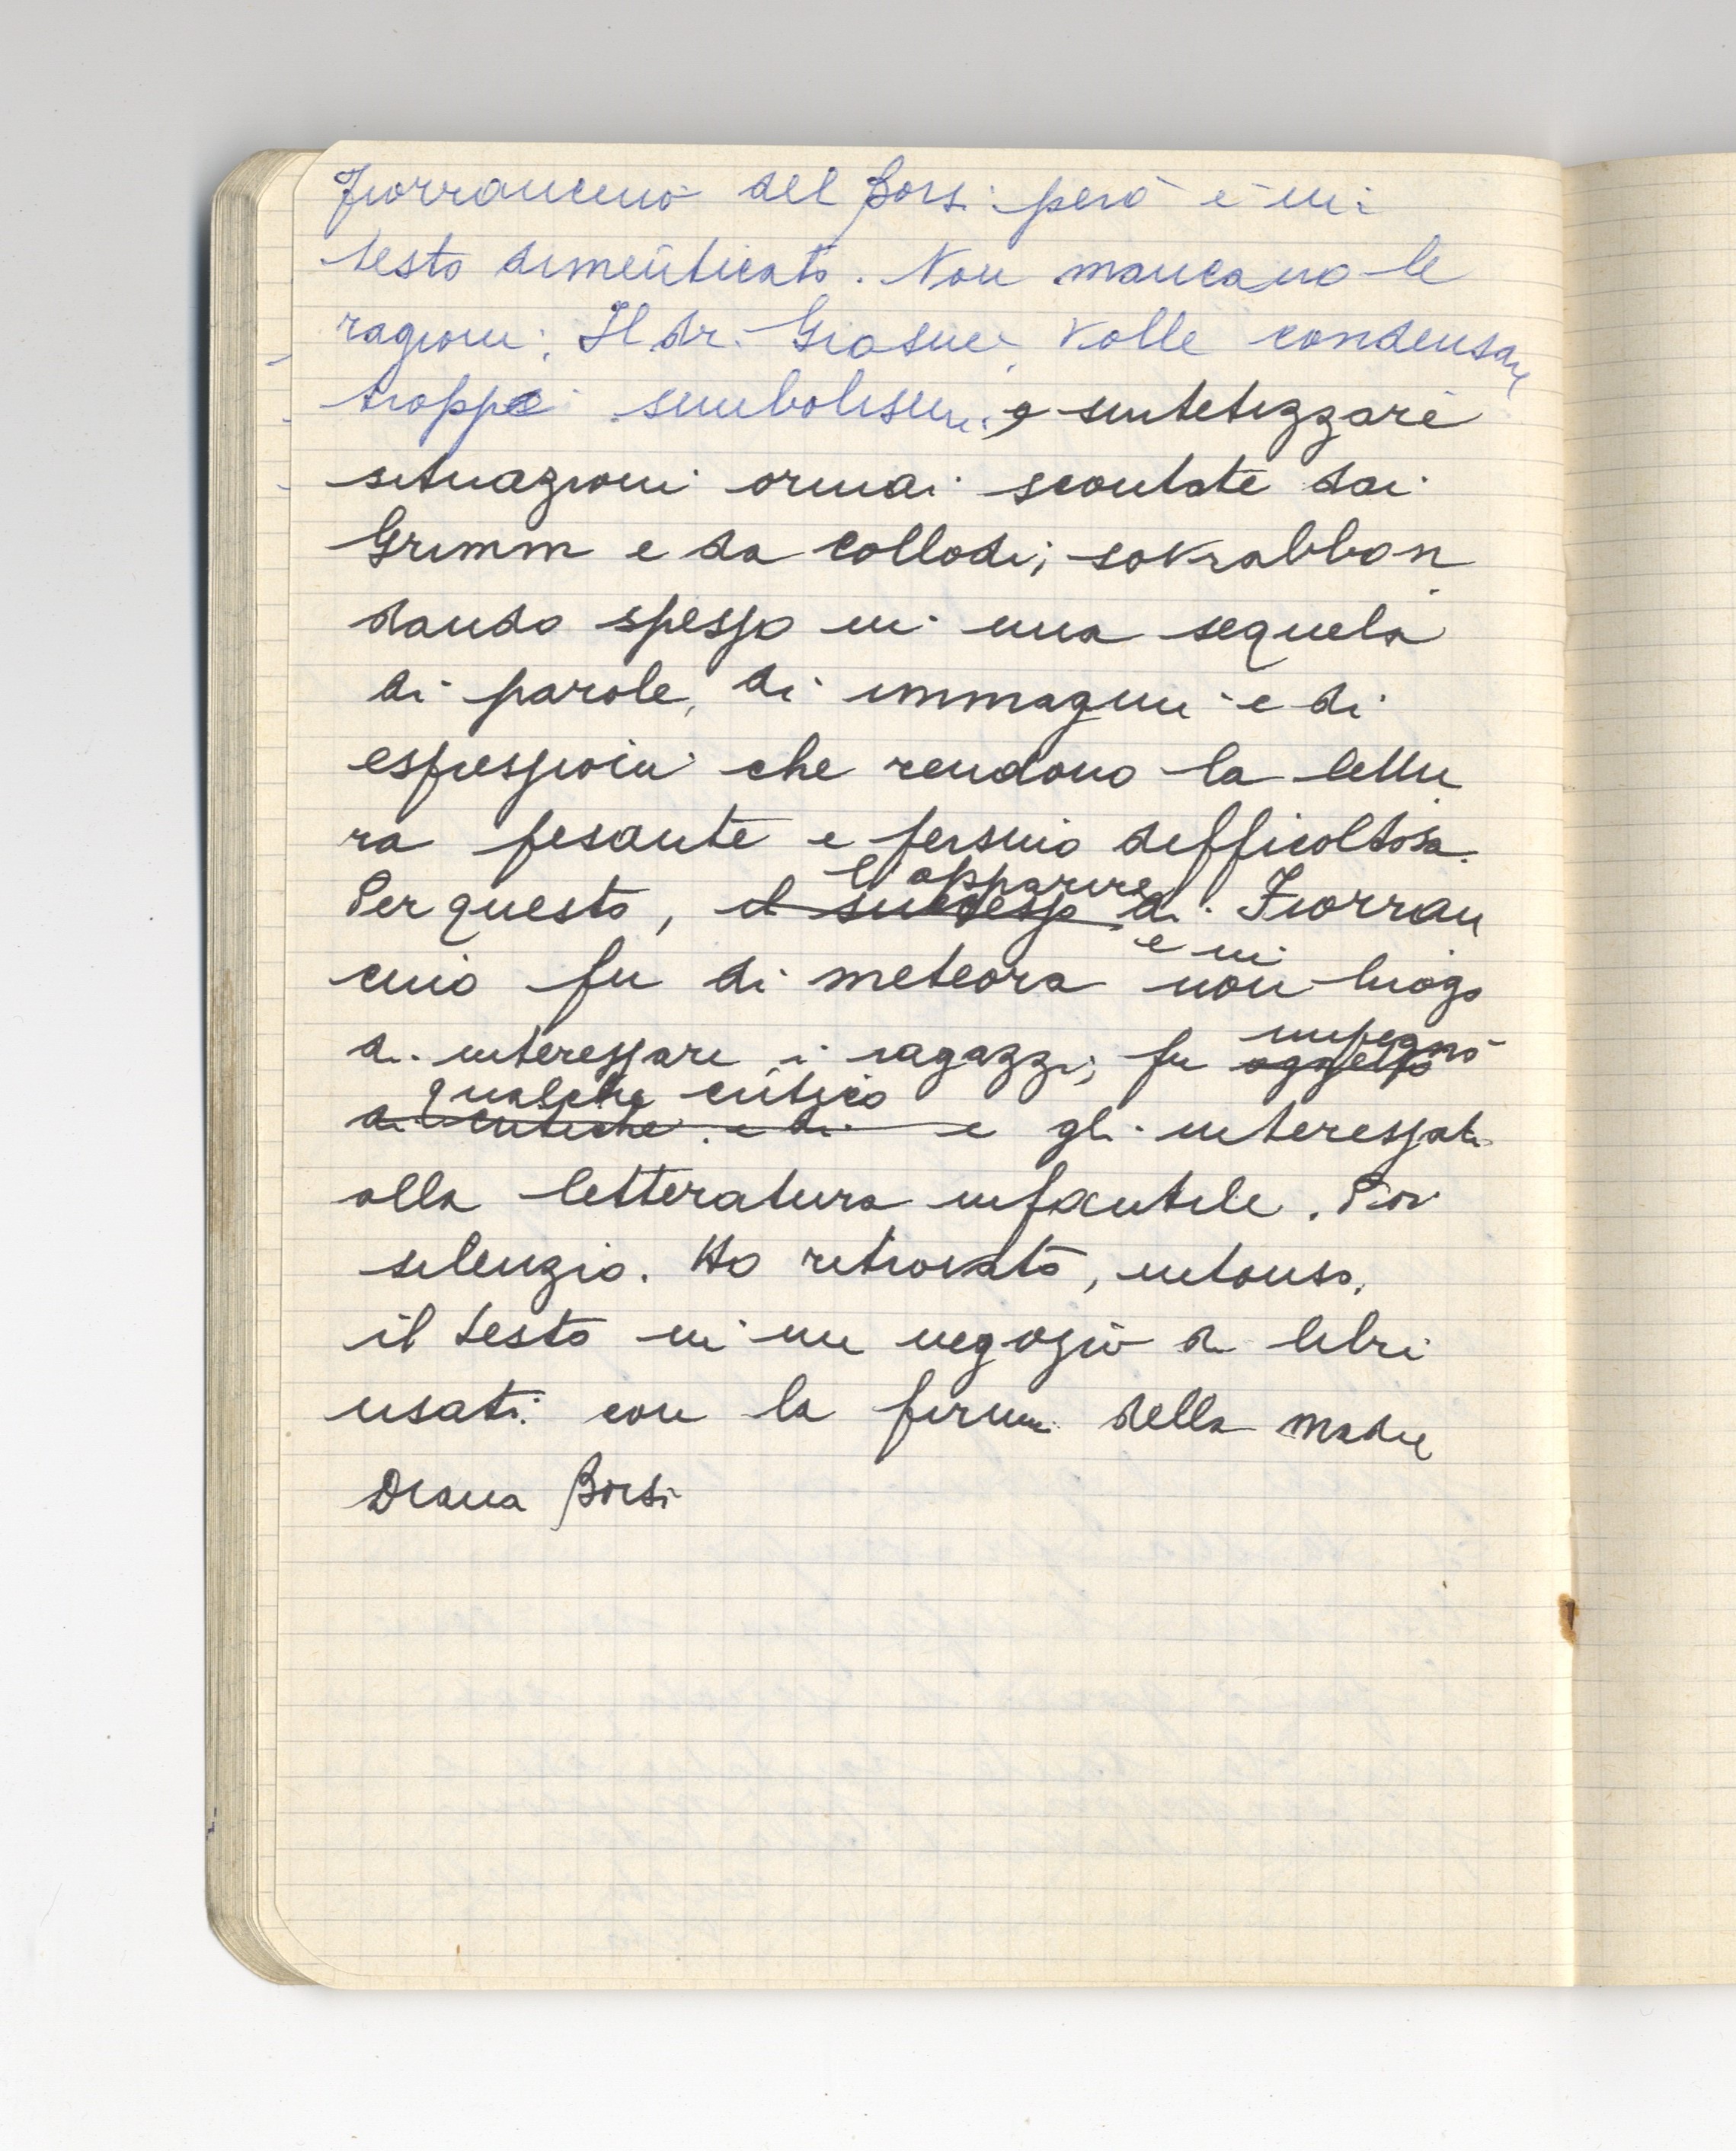 Fiorrancino del Borsi però è un
testo dimenticato. Non mancano le
ragioni: Il dr. Giosuè volle condensare
troppi simbolismi e sintetizzare
situazioni ormai scontate dai
Grimm e da Collodi; sovrabbon
dando spesso in una sequela
di parole, di immagini e di
espressioni che rendono la lettu
ra pesante e persino difficoltosa.
l'apparire
Per questo, il successo di Fiorran
e in
cino fu di meteora non luogo
impegnò
di interessare i ragazzi; fu oggetto
qualche critico
di critiche e di e gli interessati
alla letteratura infantile. Poi
silenzio. Ho ritrovato, intonso,
il testo in un negozio di libri
usati con la firma della madre
Diana Borsi